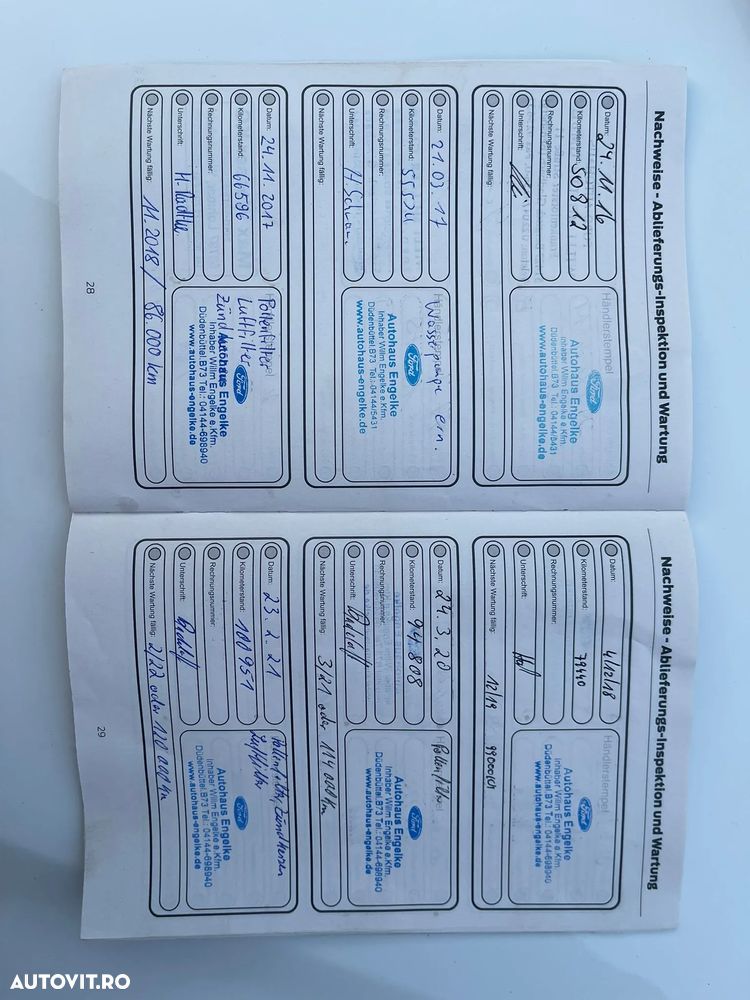 Nachweise - Ablieferungs-Inspektion und Wartung
Datum: 24.11.16
Kilometerstand: 50812
Rechnungsnummer:
Unterschrift:
Nächste Wartung fällig:
Händlerstempel
Ford
Autohaus Engelke
Inhaber Willm Engelke e.Kfm.
Düdenbüttel B73 Tel.: 04144/5431
www.autohaus-engelke.de
Datum: 21.03.17
Kilometerstand:
Rechnungsnummer:
Unterschrift:
Nächste Wartung fällig:
Wasserpumpe ern.
Ford
Autohaus Engelke
Inhaber Willm Engelke e.Kfm.
Düdenbüttel B73 Tel.: 04144/5431
www.autohaus-engelke.de
Datum: 24.11.2017
Kilometerstand: 66596
Rechnungsnummer:
Unterschrift:
Nächste Wartung fällig: 11.2018 / 86.000 km
Pollenfilter
Luftfilter
Ford
Autohaus Engelke
Inhaber Willm Engelke e.Kfm.
Düdenbüttel B73 Tel.: 04144-698940
www.autohaus-engelke.de
28
Nachweise - Ablieferungs-Inspektion und Wartung
Datum: 4/12/18
Kilometerstand: 79440
Rechnungsnummer:
Unterschrift:
Nächste Wartung fällig: 12/19
Händlerstempel
Ford
Autohaus Engelke
Inhaber Willm Engelke e.Kfm.
Düdenbüttel B73 Tel.: 04144-698940
www.autohaus-engelke.de
Datum: 24.3.20
Kilometerstand: 94808
Rechnungsnummer:
Unterschrift:
Nächste Wartung fällig: 3/21 oder 114 000 km
Ford
Autohaus Engelke
Inhaber Willm Engelke e.Kfm.
Düdenbüttel B73 Tel.: 04144-698940
www.autohaus-engelke.de
Datum: 23.2.21
Kilometerstand: 100951
Rechnungsnummer:
Unterschrift:
Nächste Wartung fällig: 2/22 oder
Pollenfilter, Zündkerzen
Luftfilter
Ford
Autohaus Engelke
Inhaber Willm Engelke e.Kfm.
Düdenbüttel B73 Tel.: 04144-698940
www.autohaus-engelke.de
29
AUTOVIT.RO